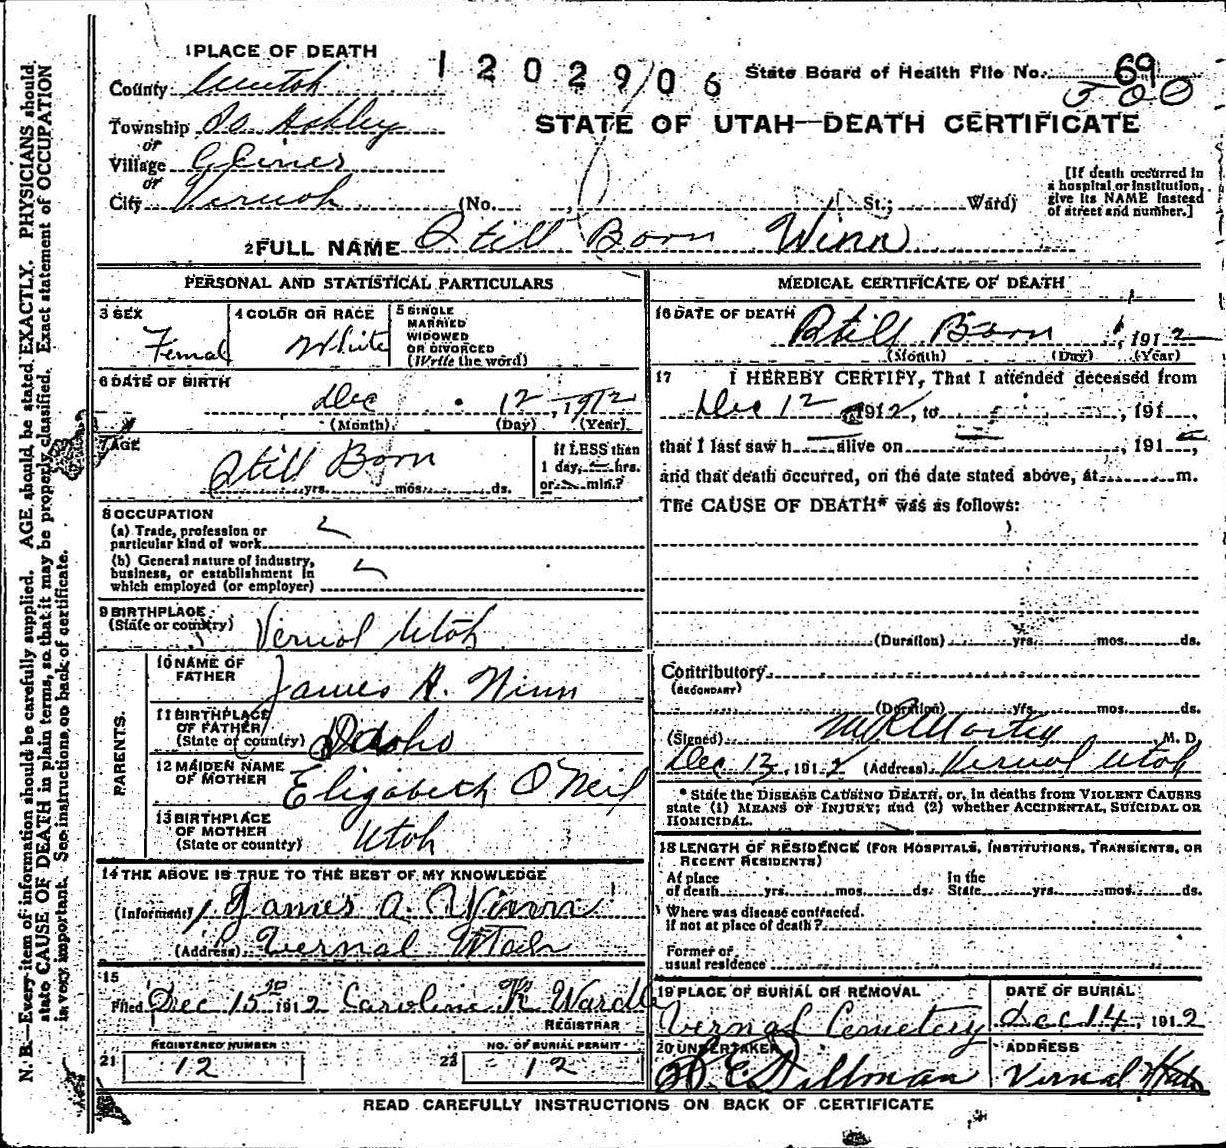 1 PLACE OF DEATH
1202906
State Board of Health File No. 69
500
County Uintah
STATE OF UTAH—DEATH CERTIFICATE
Township So Ashley
or
Village
or
City Vernal (No. , St.; Ward)
[If death occurred in
a hospital or institution,
give its NAME instead
of street and number.]
2 FULL NAME Still Born Winn
PERSONAL AND STATISTICAL PARTICULARS
3 SEX
Femal
4 COLOR OR RACE
White
5 SINGLE
MARRIED
WIDOWED
OR DIVORCED
(Write the word)
6 DATE OF BIRTH
Dec 12, 1912
(Month) (Day) (Year)
7 AGE
Still Born
yrs. mos. ds.
If LESS than
1 day, hrs.
or min.?
8 OCCUPATION
(a) Trade, profession or
particular kind of work
(b) General nature of industry,
business, or establishment in
which employed (or employer)
9 BIRTHPLACE
(State or country) Vernal Utah
PARENTS.
10 NAME OF
FATHER James A. Winn
11 BIRTHPLACE
OF FATHER
(State or country) Idaho
12 MAIDEN NAME
OF MOTHER Elizabeth O'Neil
13 BIRTHPLACE
OF MOTHER
(State or country) Utah
14 THE ABOVE IS TRUE TO THE BEST OF MY KNOWLEDGE
(Informant) James A. Winn
(Address) Vernal Utah
15
Filed Dec 15th 1912 Caroline K Wardle
REGISTRAR
21 REGISTERED NUMBER
12
22 NO. OF BURIAL PERMIT
12
MEDICAL CERTIFICATE OF DEATH
16 DATE OF DEATH
Still Born, 1912
(Month) (Day) (Year)
17 I HEREBY CERTIFY, That I attended deceased from
Dec 12 1912, to , 191 ,
that I last saw h alive on , 191 ,
and that death occurred, on the date stated above, at m.
The CAUSE OF DEATH* was as follows:
(Duration) yrs. mos. ds.
Contributory
(SECONDARY)
(Duration) yrs. mos. ds.
(Signed) , M. D.
Dec 13, 1912 (Address) Vernal Utah
* State the DISEASE CAUSING DEATH, or, in deaths from VIOLENT CAUSES
state (1) MEANS OF INJURY; and (2) whether ACCIDENTAL, SUICIDAL OR
HOMICIDAL.
18 LENGTH OF RESIDENCE (FOR HOSPITALS, INSTITUTIONS, TRANSIENTS, OR
RECENT RESIDENTS)
At place
of death yrs. mos. ds.
In the
State yrs. mos. ds.
Where was disease contracted.
if not at place of death?
Former or
usual residence
19 PLACE OF BURIAL OR REMOVAL
Vernal Cemetery
DATE OF BURIAL
Dec 14, 1912
20 UNDERTAKER
Dillman
ADDRESS
Vernal Utah
READ CAREFULLY INSTRUCTIONS ON BACK OF CERTIFICATE
N. B.—Every item of information should be carefully supplied. AGE should be stated EXACTLY. PHYSICIANS should
state CAUSE OF DEATH in plain terms, so that it may be properly classified. Exact statement of OCCUPATION
is very important. See instructions on back of certificate.